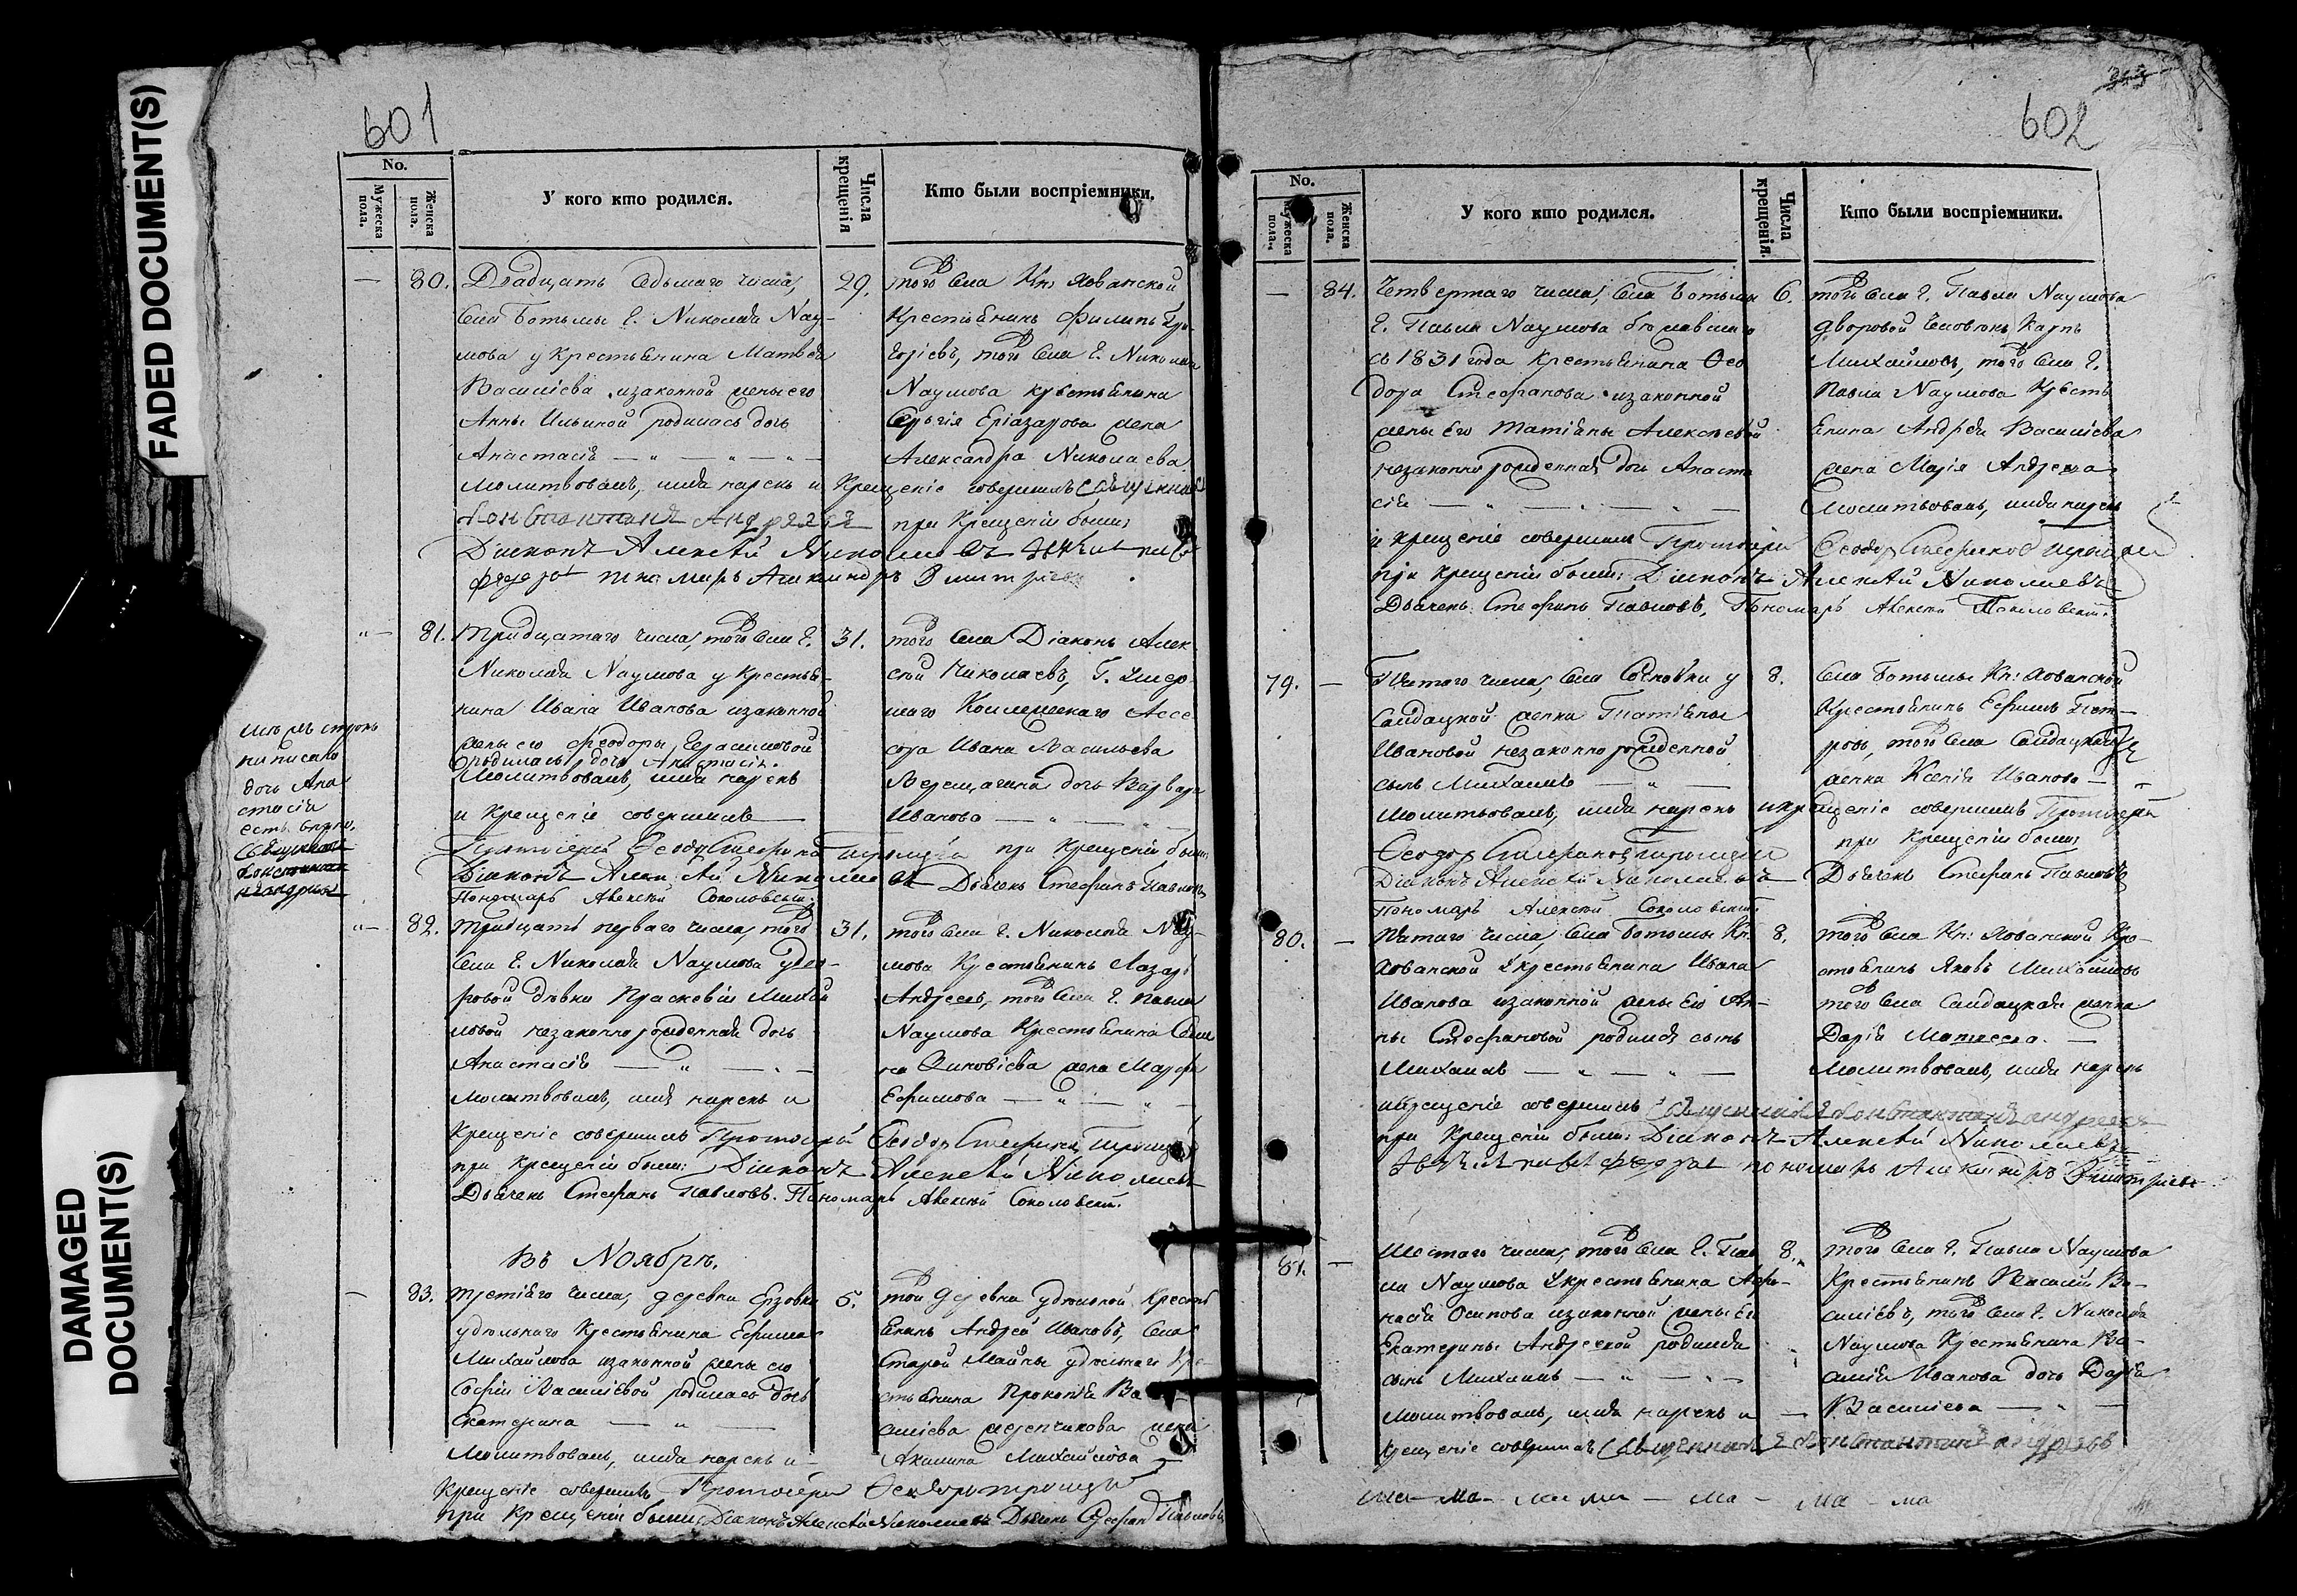 FADED DOCUMENT(S)
DAMAGED DOCUMENT(S)
601
No.
Мужеска пола.
Женска пола.
У кого кто родился.
Числа крещенія
Кто были воспріемники.
— 80. Двадцать седьмаго числа,
села Ботьмы Г. Николая Нау-
мова у крестьянина Матвея
Василіева изаконной жены его
Анны Ильиной родилась дочь
Анастасія — „ — „ — „ —
29. того села Кн: Хованской
крестьянинъ Филипъ
того села Г. Николая
Наумова крестьянина
Сергія Еліазарова жена
Александра Николаева
молитвовалъ, имя нарекъ и крещеніе совершилъ Священникъ
Константинъ Андреевъ при крещеніи были:
Діаконъ Алексѣй Николаевъ
пономарь Александръ Дмитріевъ
„— 81. Тридцатаго числа, того села Г.
Николая Наумова у крестья-
нина Ивана Иванова изаконной
жены его Феодоры Герасимовой
родилась дочь Анастасія.
молитвовалъ, имя нарекъ
и крещеніе совершилъ
31. того села Діаконъ Алек-
сѣй Николаевъ, Г. Умер-
шаго Коллежскаго Ассе-
сора Ивана Васильева
Верещагина дочь Варвара
Иванова — „ —
Протоіерей Феодоръ Стефановъ при крещеніи были
Діаконъ Алексѣй Николаевъ Дьячекъ Стефанъ Павловъ
Пономарь Алексѣй Соколовскій.
написано
дочь Ана
стасія
есть вѣрно.
Священникъ
Константинъ
Андреевъ
„— 82. Тридцать перваго числа, того
села Г. Николая Наумова у дво-
ровой дѣвки Прасковіи Михай
ловой незаконнорожденная дочь
Анастасія — „ — . —
молитвовалъ, имя нарекъ и
31. того села Г. Николая Нау-
мова крестьянинъ Лазарь
Андреевъ, того села Г. Павла
Наумова крестьянина
Зиновіева жена Марфа
Ефимова — „ — „ —
крещеніе совершилъ Протоіерей Феодоръ Стефановъ
при крещеніи были: Діаконъ Алексѣй Николаевъ
Дьячекъ Стефанъ Павловъ. Пономарь Алексѣй Соколовскій.
Въ Ноябрѣ.
— 83. Третіяго числа, деревни Ерзовки
удѣльнаго крестьянина Ефима
Михайлова изаконной жены его
Софіи Василіевой родилась дочь
Екатерина — „ —
молитвовалъ, имя нарекъ и
5. той деревни удѣльной кресть
янинъ Андрей Ивановъ, села
Старой Майны удѣльнаго кре-
стьянина Прокопія Ва-
силіева жена
Акилина Михайлова —
крещеніе совершилъ Протоіерей Феодоръ
при крещеніи были, Діаконъ Алексѣй Николаевъ Дьячекъ Стефанъ Павловъ
602
No.
Мужеска пола.
Женска пола.
У кого кто родился.
Числа крещенія.
Кто были воспріемники.
— 84. Четвертаго числа, села Ботьмы
Г. Павла Наумова бежавшаго
съ 1831 года крестьянина Фео
дора Стефанова изаконной
жены его Татіяны Алексѣевой
незаконнорожденная дочь Анаста
сія — „ — . — . —
6. того села Г. Павла Наумова
дворовой человѣкъ Карпъ
Михайловъ, того села Г.
Павла Наумова кресть
янина Андрея Василіева
жена Марія Андреева
молитвовалъ, имя нарекъ
и крещеніе совершилъ Протоіерей Феодоръ Стефановъ
при крещеніи были: Діаконъ Алексѣй Николаевъ
Дьячекъ Стефанъ Павловъ, Пономарь Алексѣй Соколовскій.
79. — Пятаго числа, села Сосновки у
Салдацкой женки Татіяны
Ивановой незаконнорожденной
сынъ Михаилъ — „ —
8. села Ботьмы Кн: Хованской
крестьянинъ Ефимъ Пет-
ровъ, того села Салдацкая
женка Ксенія Иванова — „
молитвовалъ, имя нарекъ и крещеніе совершилъ Протоіерей
Феодоръ Стефановъ при крещеніи были:
Діаконъ Алексѣй Николаевъ Дьячекъ Стефанъ Павловъ
Пономарь Алексѣй Соколовскій
80. — Пятаго числа, села Ботьмы Кн:
Хованской у крестьянина Ивана
Иванова изаконной жены его Ан-
ны Стефановой родился сынъ
Михаилъ — „ — „ —
8. того села Кн: Хованской кре-
стьянинъ Яковъ Михайловъ
того села Салдацкая женка
Дарія Матвеева. —
молитвовалъ, имя нарекъ
и крещеніе совершилъ Священникъ Константинъ Андреевъ
при крещеніи были: Діаконъ Алексѣй Николаевъ
пономарь Александръ Дмитріевъ
81. — Шестаго числа, того села Г. Пав
ла Наумова у крестьянина Афа-
насія Осипова изаконной жены его
Екатерины Андреевой родился
сынъ Михаилъ — „ — „ —
молитвовалъ, имя нарекъ и —
8. того села Г. Павла Наумова
крестьянинъ Василій Ва-
силіевъ, того села Г. Николая
Наумова крестьянина Ва-
силія Иванова дочь Дарія
Василіева — „ —
крещеніе совершилъ Священникъ Константинъ Андреевъ